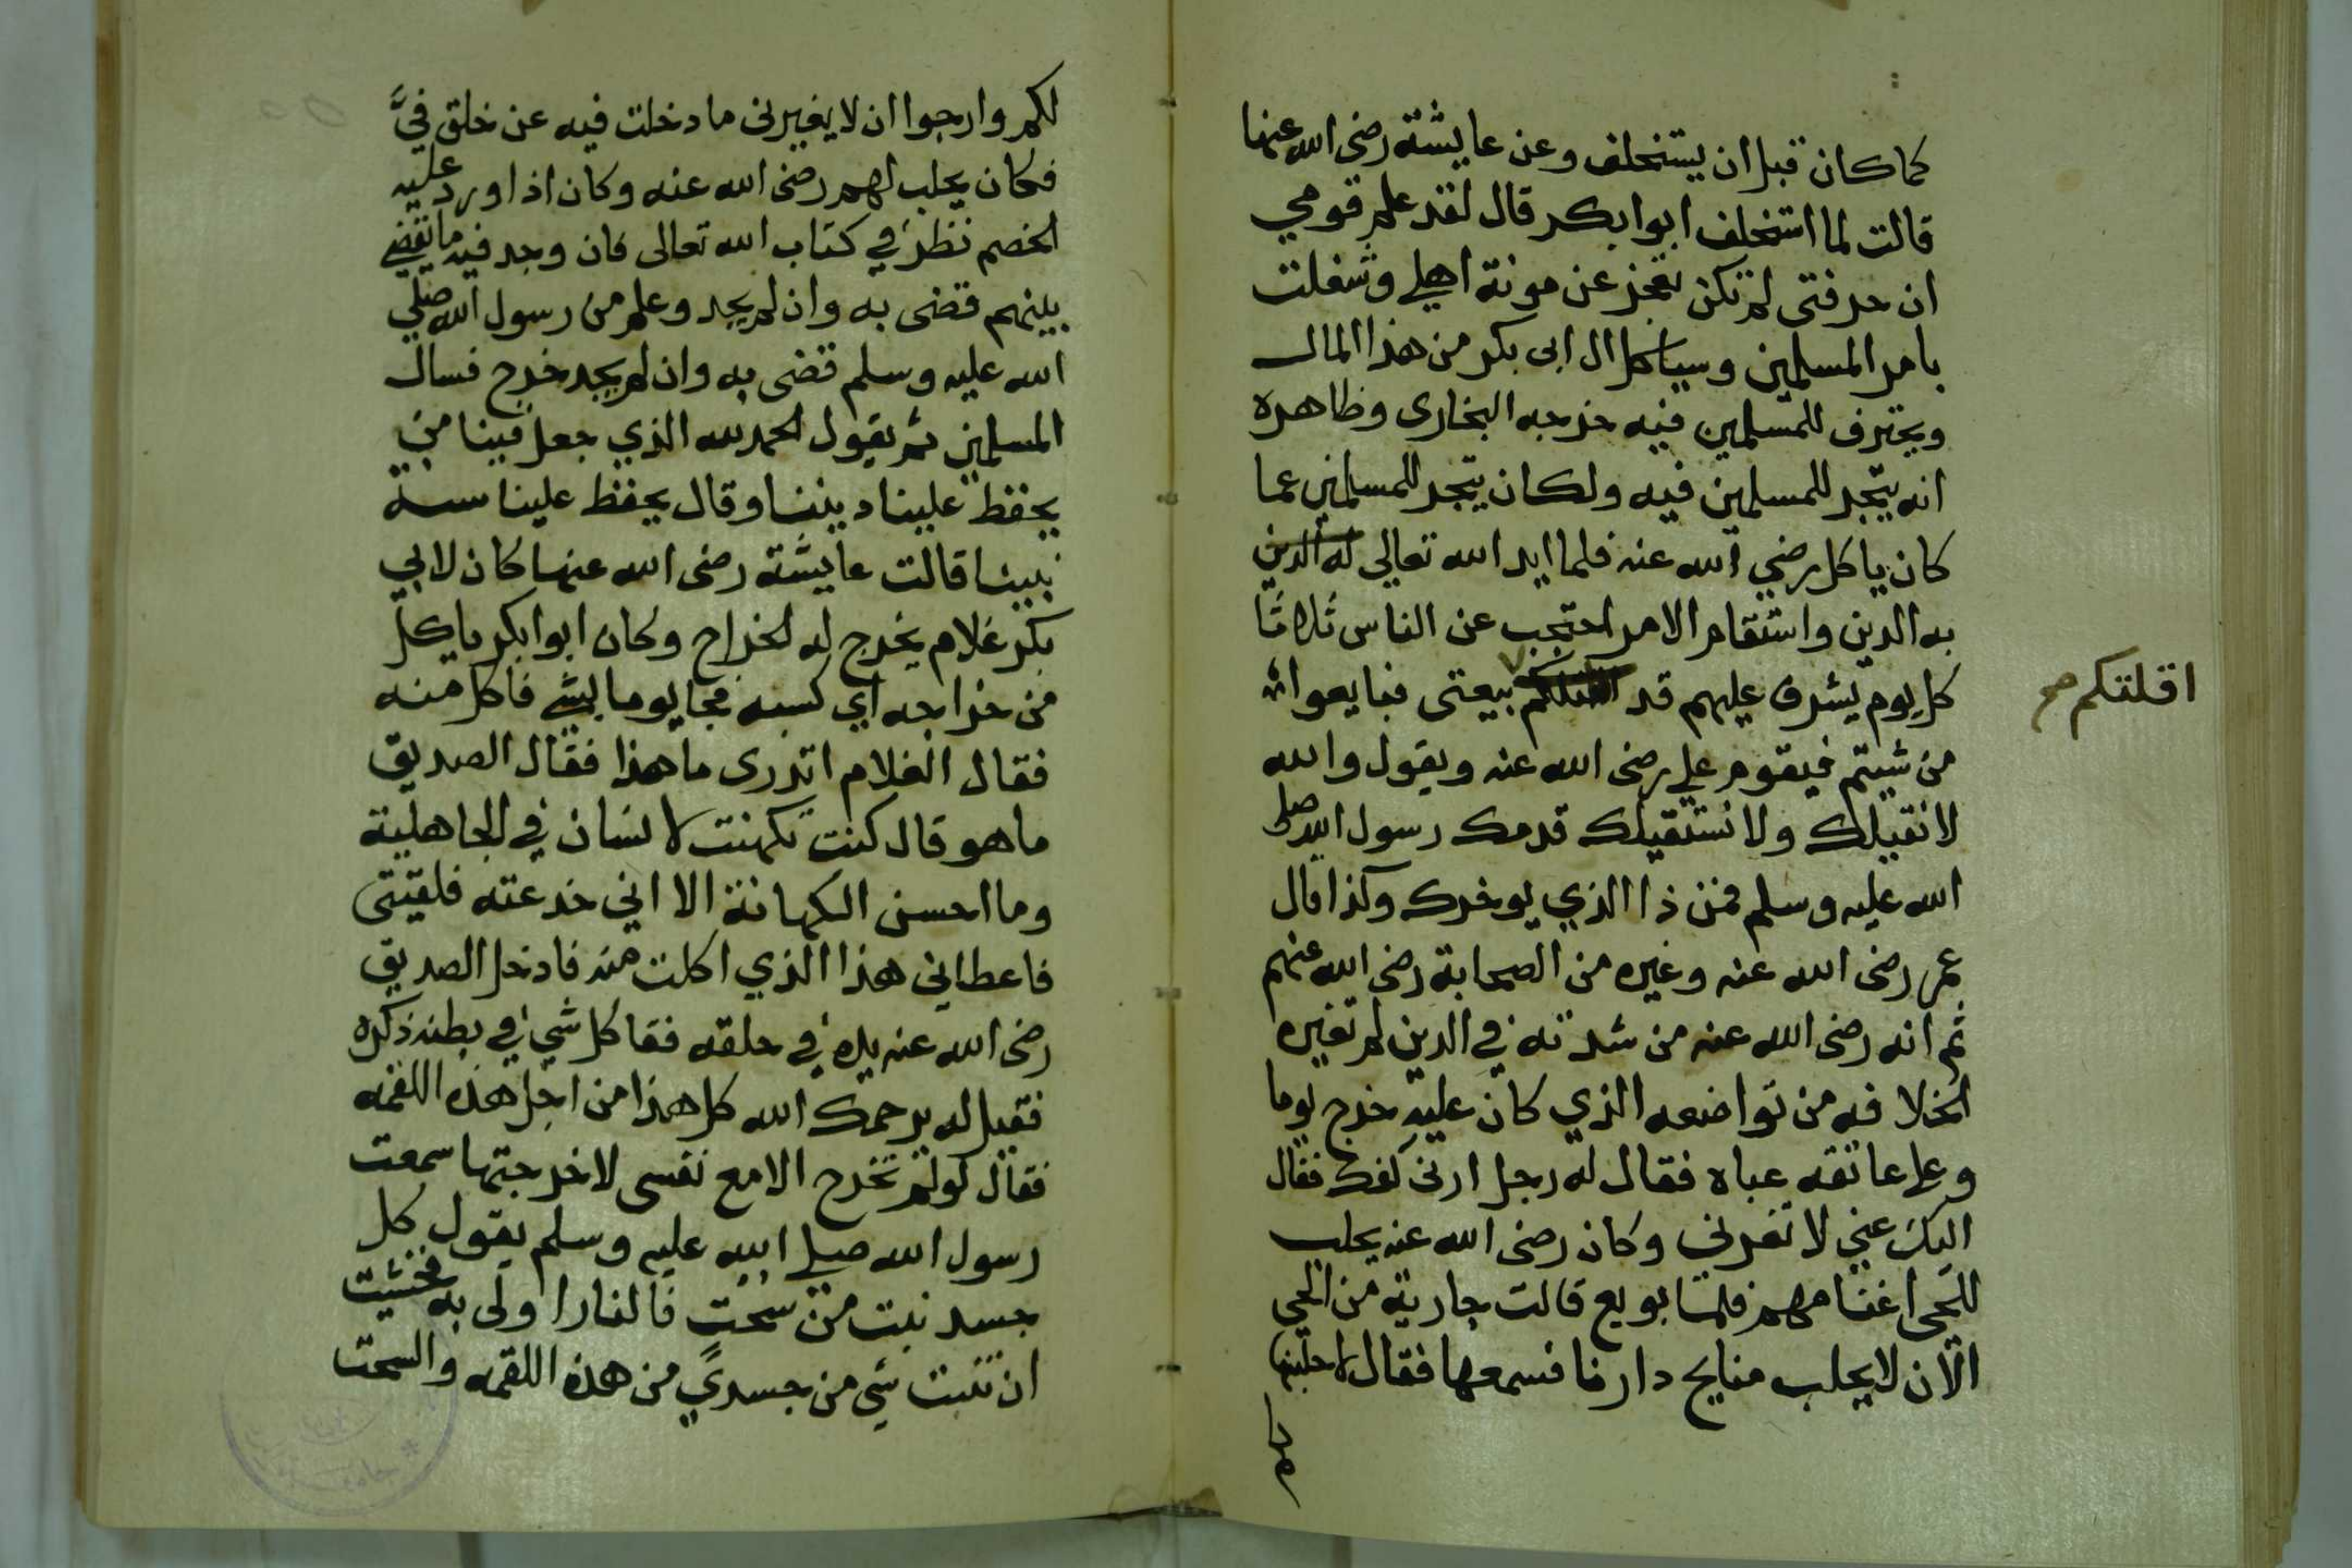 كما كان قبل ان يستخلف وعن عايشة رضى الله عنها
قالت لما استخلف ابوا بكر قال لقد علم قومي
ان حرفتى لم تكن تعجز عن مونة اهلي وشغلت
بامر المسلمين وسياكل ال ابى بكر من هذا المال
ويحترف للمسلمين فيه خرجه البخارى وظاهره
انه يتجر للمسلمين فيه ولكان يتجر للمسلمين عما
كان ياكل رضي الله عنه فلما ايد الله تعالى له الدين
به الدين واستقام الامر احتجب عن الناس ثلاثا
كل يوم يشرف عليهم قد بيعتى فبايعوا
اقلتكم صح
من شيتم فيقوم علي رضى الله عنه ويقول والله
لا نقيلك ولا نستقيلك قدمك رسول الله صلى
الله عليه وسلم فمن ذا الذي يوخرك وكذا قال
عمر رضى الله عنه وغيره من الصحابة رضى الله عنهم
ثم انه رضى الله عنه من شدته في الدين لم تغيره
الخلافه من تواضعه الذي كان عليه خرج يوما
وعلى عاتقه عباه فقال له رجل ارنى كفك فقال
اليك عني لا تغرني وكان رضى الله عنه يحلب
للحى اغنامهم فلما بويع قالت جارية من الحي
الان لا يحلب منايح دارنا فسمعها فقال لاحلبنها
لكم
لكم وارجوا ان لا يغيرنى ما دخلت فيه عن خلق فيَّ
فكان يحلب لهم رضى الله عنه وكان اذا اورد عليه
الخصم نظر في كتاب الله تعالى فان وجد فيه ما يقضي
بينهم قضى به وان لم يجد وعلم من رسول الله صلي
الله عليه وسلم قضى به وان لم يجد خرج فسال
المسلمين ثم يقول الحمد لله الذي جعل فينا من
يحفظ علينا ديننا وقال يحفظ علينا سنة
نبينا قالت عايشة رضى الله عنها كان لابي
بكر غلام يخرج له الخراج وكان ابوا بكر ياكل
من خراجه اي كسبه فجا يوما بشي فاكل منه
فقال الغلام اتدرى ما هذا فقال الصديق
ما هو قال كنت تكهنت لانسان في الجاهلية
وما احسن الكهانة الا اني خدعته فلقيتى
فاعطاني هذا الذي اكلت منه فادخل الصديق
رضى الله عنه يده في حلقه فقا كل شي في بطنه ذكره
فقيل له يرحمك الله كل هذا من اجل هذه اللقمه
فقال لو لم تخرج الا مع نفسى لاخرجتها سمعت
رسول الله صلي الله عليه وسلم يقول كل
جسد نبت من سُحتٍ فالنار اولى به فخشيت
ان ننبت شي من جسدي من هذه اللقمه والسحت